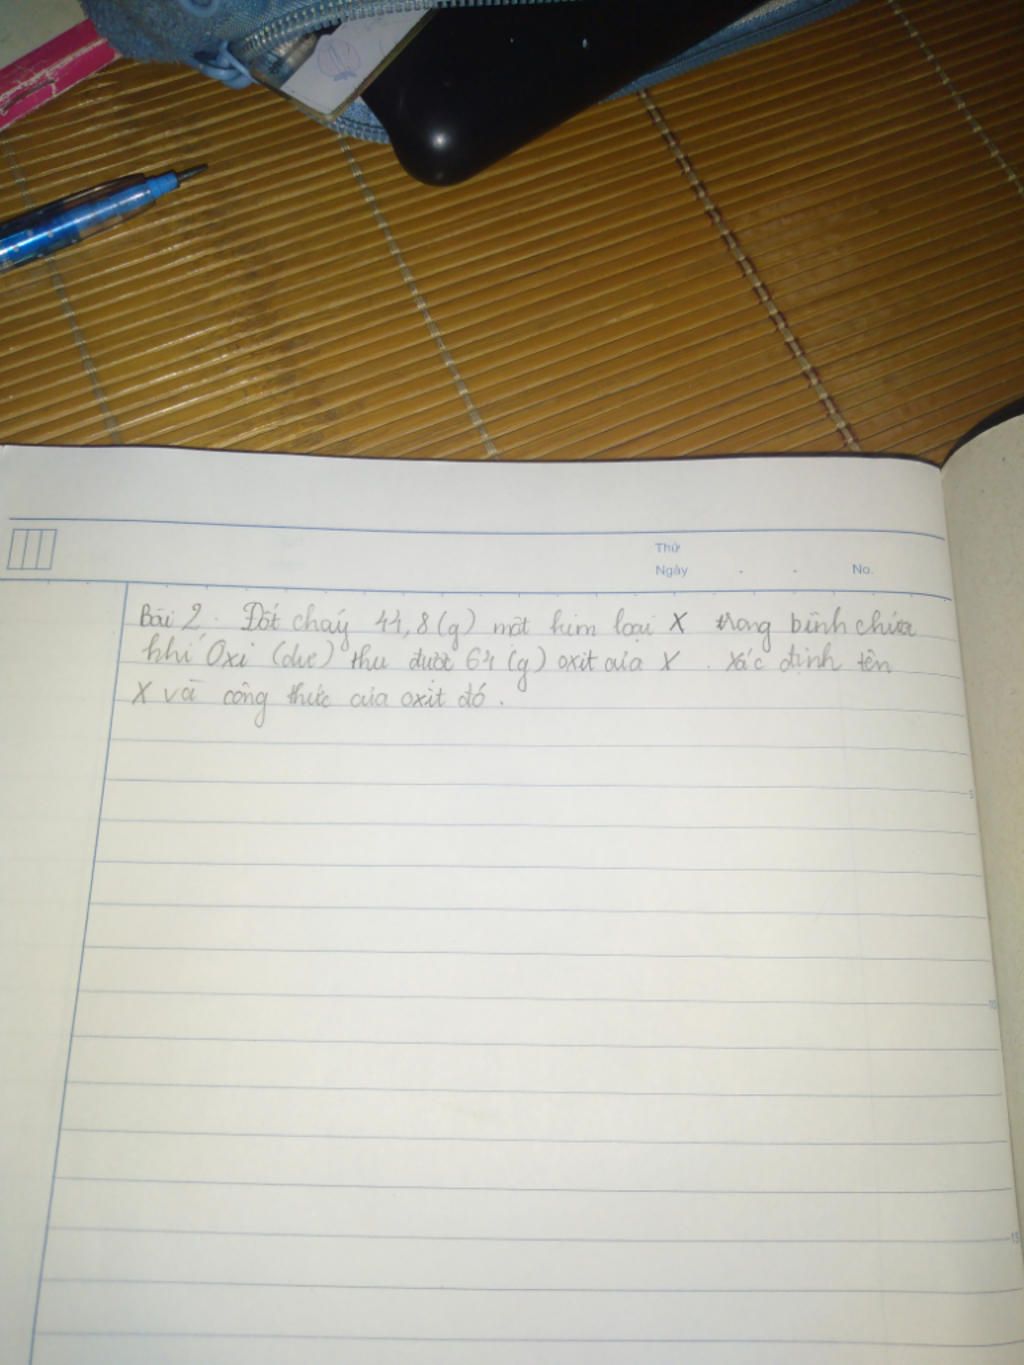 Thứ
Ngày . . No.
Bài 2. Đốt cháy 44,8 (g) một kim loại X trong bình chứa
khí Oxi (dư) thu được 64 (g) oxit của X. Xác định tên
X và công thức của oxit đó.
5
10
15